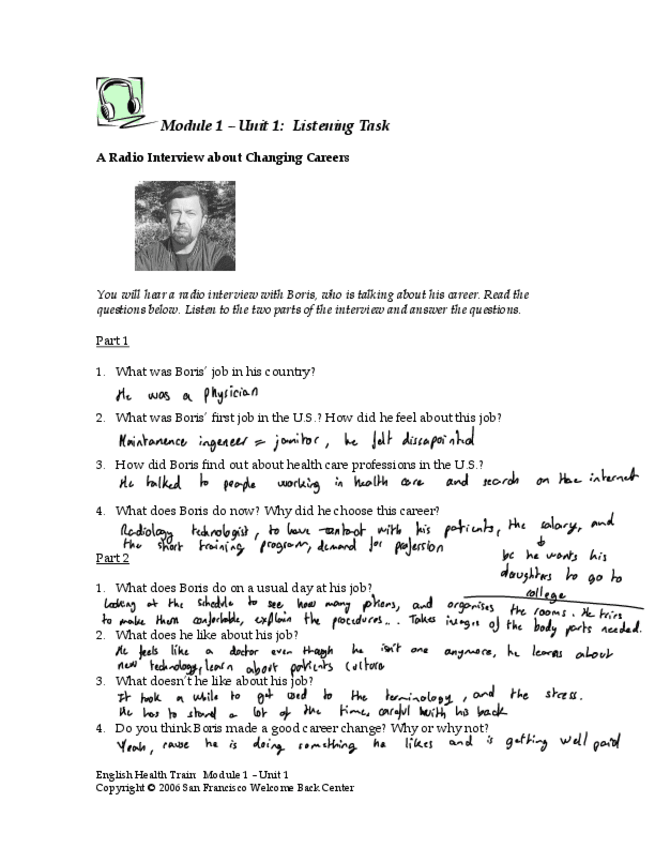 Module 1 – Unit 1: Listening Task
A Radio Interview about Changing Careers
You will hear a radio interview with Boris, who is talking about his career. Read the
questions below. Listen to the two parts of the interview and answer the questions.
Part 1
1. What was Boris' job in his country?
He was a physician
2. What was Boris' first job in the U.S.? How did he feel about this job?
Maintanence ingeneer = janitor, he felt dissapointed
3. How did Boris find out about health care professions in the U.S.?
He talked to people working in health care and search on the internet
4. What does Boris do now? Why did he choose this career?
Radiology technologist, to have contact with his patients, the salary, and
the short training program, demand for profession
bc he wants his
daughters to go to
college
Part 2
1. What does Boris do on a usual day at his job?
Looking at the schedule to see how many and organises the rooms. He tries
to make them confortable, explain the procedures... Takes images of the body parts needed.
2. What does he like about his job?
He feels like a doctor even though he isn't one anymore, he learns about
new technology, learn about patients culture
3. What doesn't he like about his job?
It took a while to get used to the terminology, and the stress.
He has to stand a lot of the time, careful with his back
4. Do you think Boris made a good career change? Why or why not?
Yeah, cause he is doing something he likes and is getting well paid
English Health Train Module 1 – Unit 1
Copyright © 2006 San Francisco Welcome Back Center